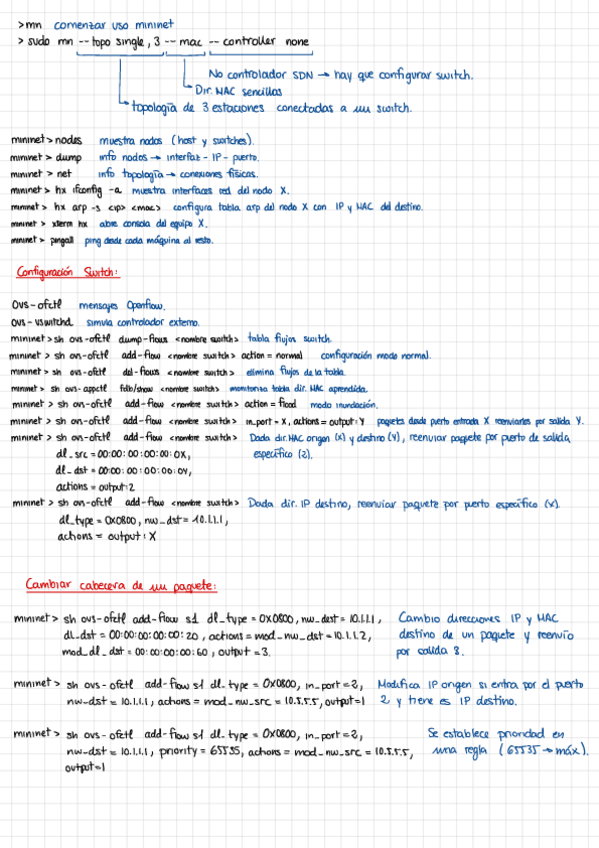 >mn comenzar uso mininet
> sudo mn --topo single, 3 --mac --controller none
No controlador SDN → hay que configurar switch.
Dir. MAC sencillas
topología de 3 estaciones conectadas a un switch.
mininet > nodes muestra nodos (host y switches).
mininet > dump info nodos → interfaz - IP - puerto.
mininet > net info topología → conexiones físicas.
mininet > hx ifconfig -a muestra interfaces red del nodo X.
mininet > hx arp -s <ip> <mac> configura tabla arp del nodo X con IP y MAC del destino.
mininet > xterm hx abre consola del equipo X.
mininet > pingall ping desde cada máquina al resto.
Configuración Switch:
ovs-ofctl mensajes Openflow.
ovs-vswitchd simula controlador externo.
mininet > sh ovs-ofctl dump-flows <nombre switch> tabla flujos switch.
mininet > sh ovs-ofctl add-flow <nombre switch> action = normal configuración modo normal.
mininet > sh ovs-ofctl del-flows <nombre switch> elimina flujos de la tabla.
mininet > sh ovs-appctl fdb/show <nombre switch> monitoriza tabla dir. MAC aprendida.
mininet > sh ovs-ofctl add-flow <nombre switch> action = flood modo inundación.
mininet > sh ovs-ofctl add-flow <nombre switch> in_port = X, actions = output: Y paquetes desde puerto entrada X reenviarles por salida Y.
mininet > sh ovs-ofctl add-flow <nombre switch> Dada dir. MAC origen (x) y destino (y), reenviar paquete por puerto de salida
dl_src = 00:00:00:00:00:0X, específico (z).
dl_dst = 00:00:00:00:00:0Y,
actions = output: Z
mininet > sh ovs-ofctl add-flow <nombre switch> Dada dir. IP destino, reenviar paquete por puerto específico (x).
dl_type = 0X0800, nw_dst = 10.1.1.1,
actions = output: X
Cambiar cabecera de un paquete:
mininet > sh ovs-ofctl add-flow s1 dl_type = 0X0800, nw_dst = 10.1.1.1, Cambio direcciones IP y MAC
dl_dst = 00:00:00:00:00:20, actions = mod_nw_dst = 10.1.1.2, destino de un paquete y reenvío
mod_dl_dst = 00:00:00:00:60, output = 3. por salida 3.
mininet > sh ovs-ofctl add-flow s1 dl_type = 0X0800, in_port = 2, Modifica IP origen si entra por el puerto
nw-dst = 10.1.1.1, actions = mod_nw_src = 10.5.5.5, output=1 2 y tiene es IP destino.
mininet > sh ovs-ofctl add-flow s1 dl_type = 0X0800, in_port = 2, Se establece prioridad en
nw-dst = 10.1.1.1, priority = 65535, actions = mod_nw_src = 10.5.5.5, una regla (65535 → máx).
output=1